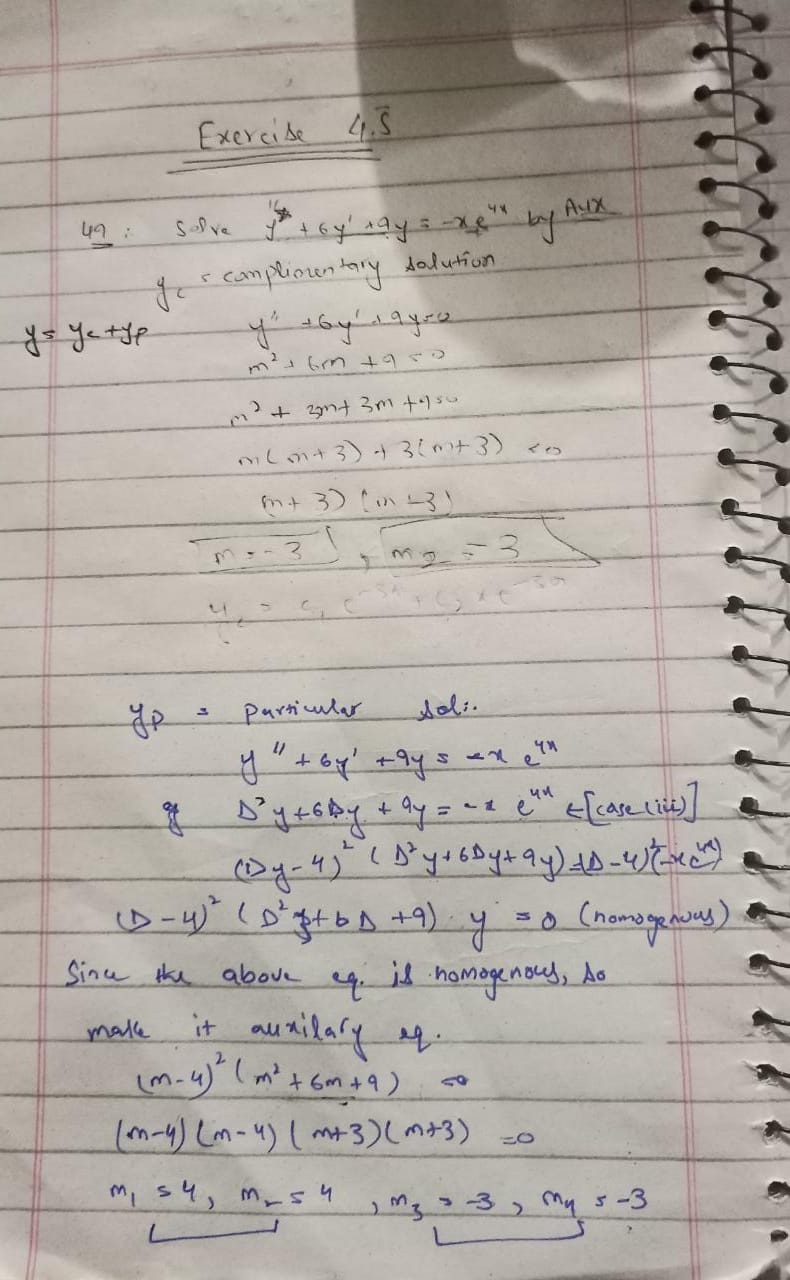 Exercise 4.5
49: Solve y" + 6y' + 9y = -xe^4x by Aux
y_c = complimentary solution
y = y_c + y_p
y" + 6y' + 9y = 0
m² + 6m + 9 = 0
m² + 3m + 3m + 9 = 0
m(m+3) + 3(m+3) = 0
(m+3) (m+3)
m = -3, m₂ = -3
y_c = c₁e^-3x + c₂xe^-3x
y_p = particular sol:.
y" + 6y' + 9y = -x e^4x
D²y + 6Dy + 9y = -x e^4x ←[case (iii)]
(Dy-4)² (D²y + 6Dy + 9y) = (D-4)²(-xe^4x)
(D-4)² (D² + 6D + 9) y = 0 (homogenous)
Since the above eq. is homogenous, so
make it auxilary eq.
(m-4)² (m² + 6m + 9) = 0
(m-4) (m-4) (m+3) (m+3) = 0
m₁ = 4, m₂ = 4, m₃ = -3, m₄ = -3